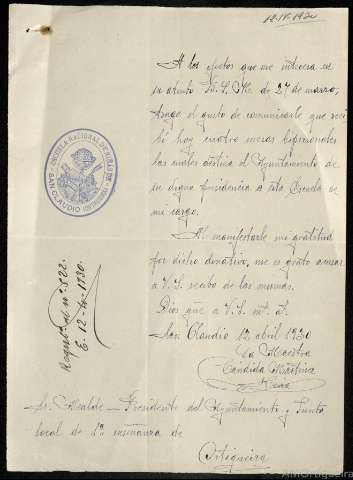 12-IV-1930
A los efectos que me interesa en
su atento B. L. M. de 27 de marzo,
tengo el gusto de comunicarle que reci
bí hoy cuatro mesas bipersonales
las cuales destina el Ayuntamiento de
su digna presidencia a esta Escuela de
mi cargo.
Al manifestarle mi gratitud
por dicho donativo, me es grato acusar
a V.S. recibo de las mismas.
Dios gue a V.S. m. a.
San Claudio 12 abril 1930
La Maestra
Cándida Martínez
Sr. Alcalde-Presidente del Ayuntamiento y Junta
local de 1ª enseñanza de
Ortigueira
ESCUELA NACIONAL DE NIÑAS DE
SAN CLAUDIO
Regdo. al nº 522
E. 12-4-1930.
AMOrtigueira